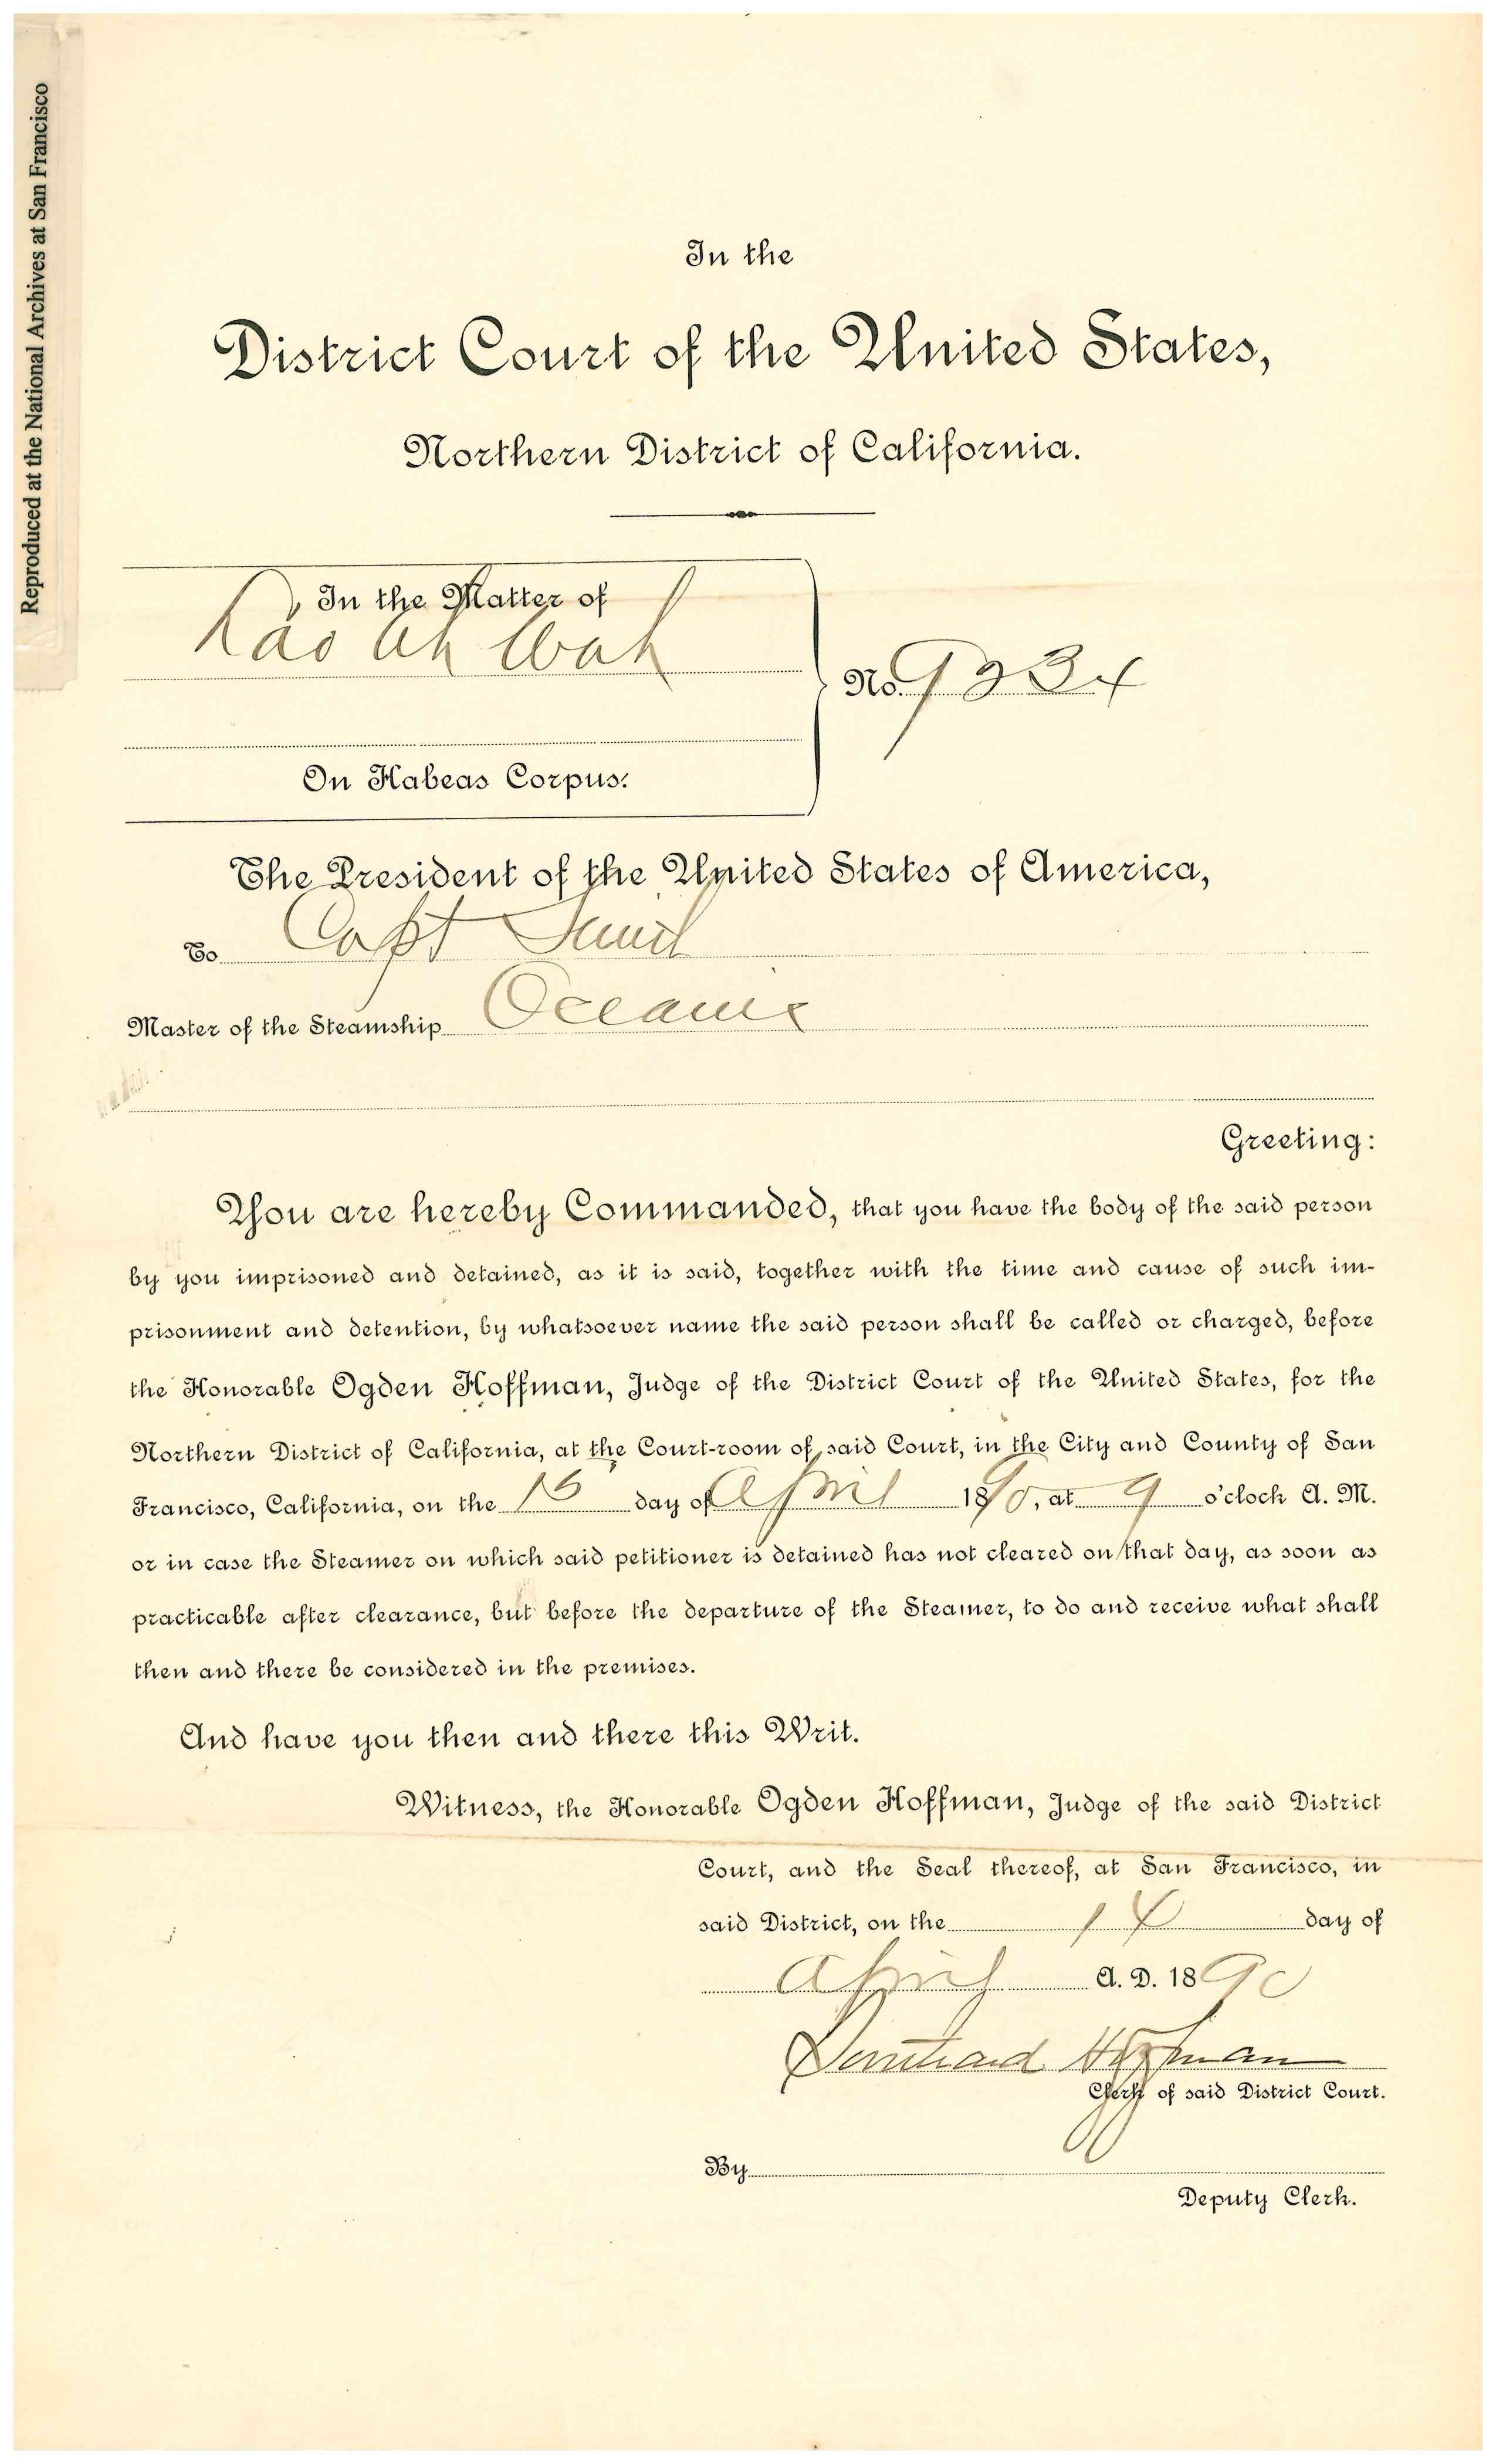 Reproduced at the National Archives at San Francisco
In the
District Court of the United States,
Northern District of California.
In the Matter of
Lao Ah Wah
No. 9234
On Habeas Corpus.
The President of the United States of America,
To Capt Smith
Master of the Steamship Oceanic
Greeting:
You are hereby Commanded, that you have the body of the said person
by you imprisoned and detained, as it is said, together with the time and cause of such im-
prisonment and detention, by whatsoever name the said person shall be called or charged, before
the Honorable Ogden Hoffman, Judge of the District Court of the United States, for the
Northern District of California, at the Court-room of said Court, in the City and County of San
Francisco, California, on the 15 day of April 1890, at 9 o'clock A. M.
or in case the Steamer on which said petitioner is detained has not cleared on that day, as soon as
practicable after clearance, but before the departure of the Steamer, to do and receive what shall
then and there be considered in the premises.
And have you then and there this Writ.
Witness, the Honorable Ogden Hoffman, Judge of the said District
Court, and the Seal thereof, at San Francisco, in
said District, on the 14 day of
April A. D. 1890
Southard Hoffman
Clerk of said District Court.
By
Deputy Clerk.